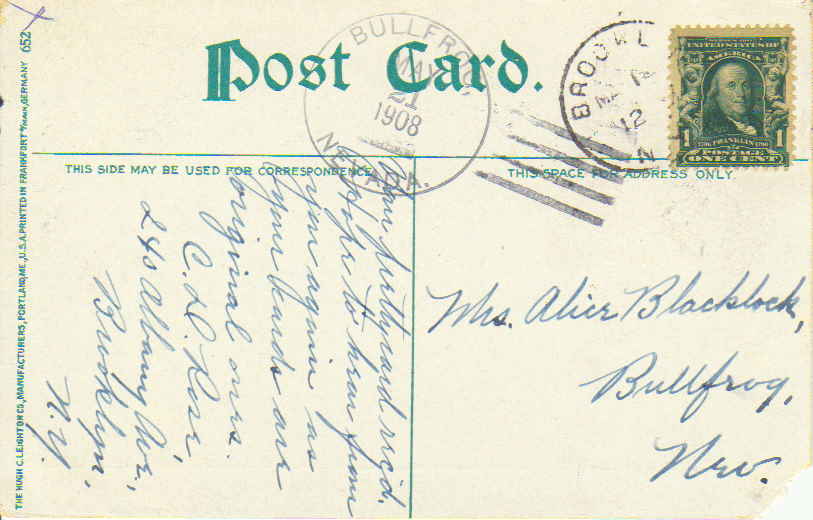 652
Post Card.
BULLFROG,
MAY
21
1908
NEVADA.
BROOKL
MA
12
N
UNITED STATES OF
AMERICA
1 1
1706 FRANKLIN 1790
POSTAGE
ONE CENT
THIS SIDE MAY BE USED FOR CORRESPONDENCE
THIS SPACE FOR ADDRESS ONLY.
Your pretty card rec'd.
Hope to hear from
you again as
your cards are
original ones.
C. D. Rose,
240 Albany Ave.,
Brooklyn,
N.Y.
Mrs. Alice Blacklock,
Bullfrog,
Nev.
THE HUGH C. LEIGHTON CO., MANUFACTURERS, PORTLAND, ME., U.S.A. PRINTED IN FRANKFORT o/MAIN, GERMANY